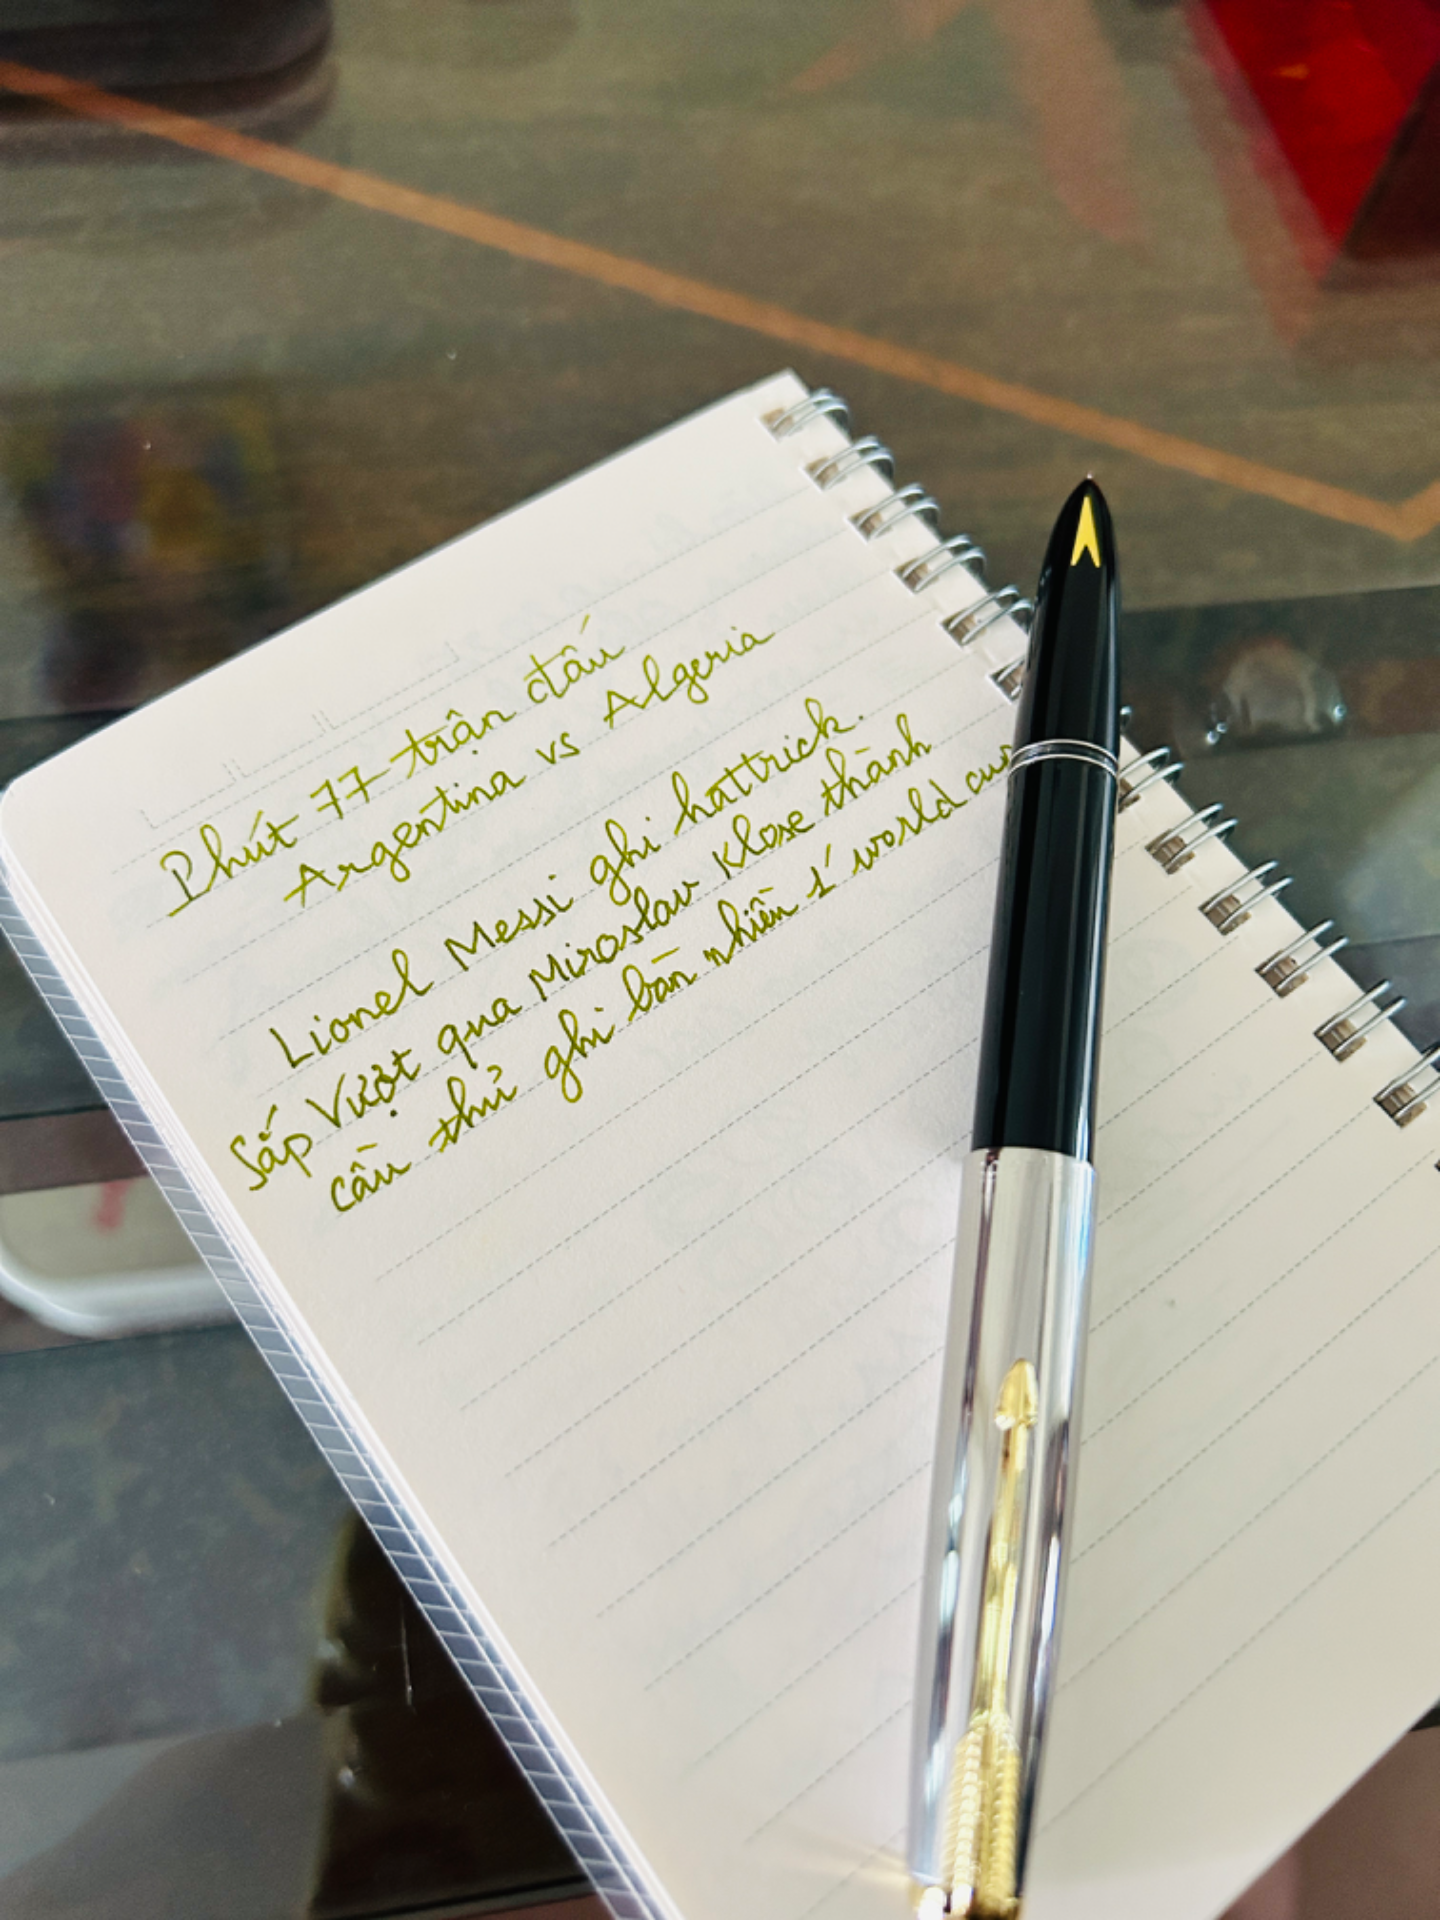 Phút 77 trận đấu
Argentina vs Algeria
Lionel Messi ghi hattrick.
Sắp Vượt qua Miroslav Klose thành
cầu thủ ghi bàn nhiền 1' world cup